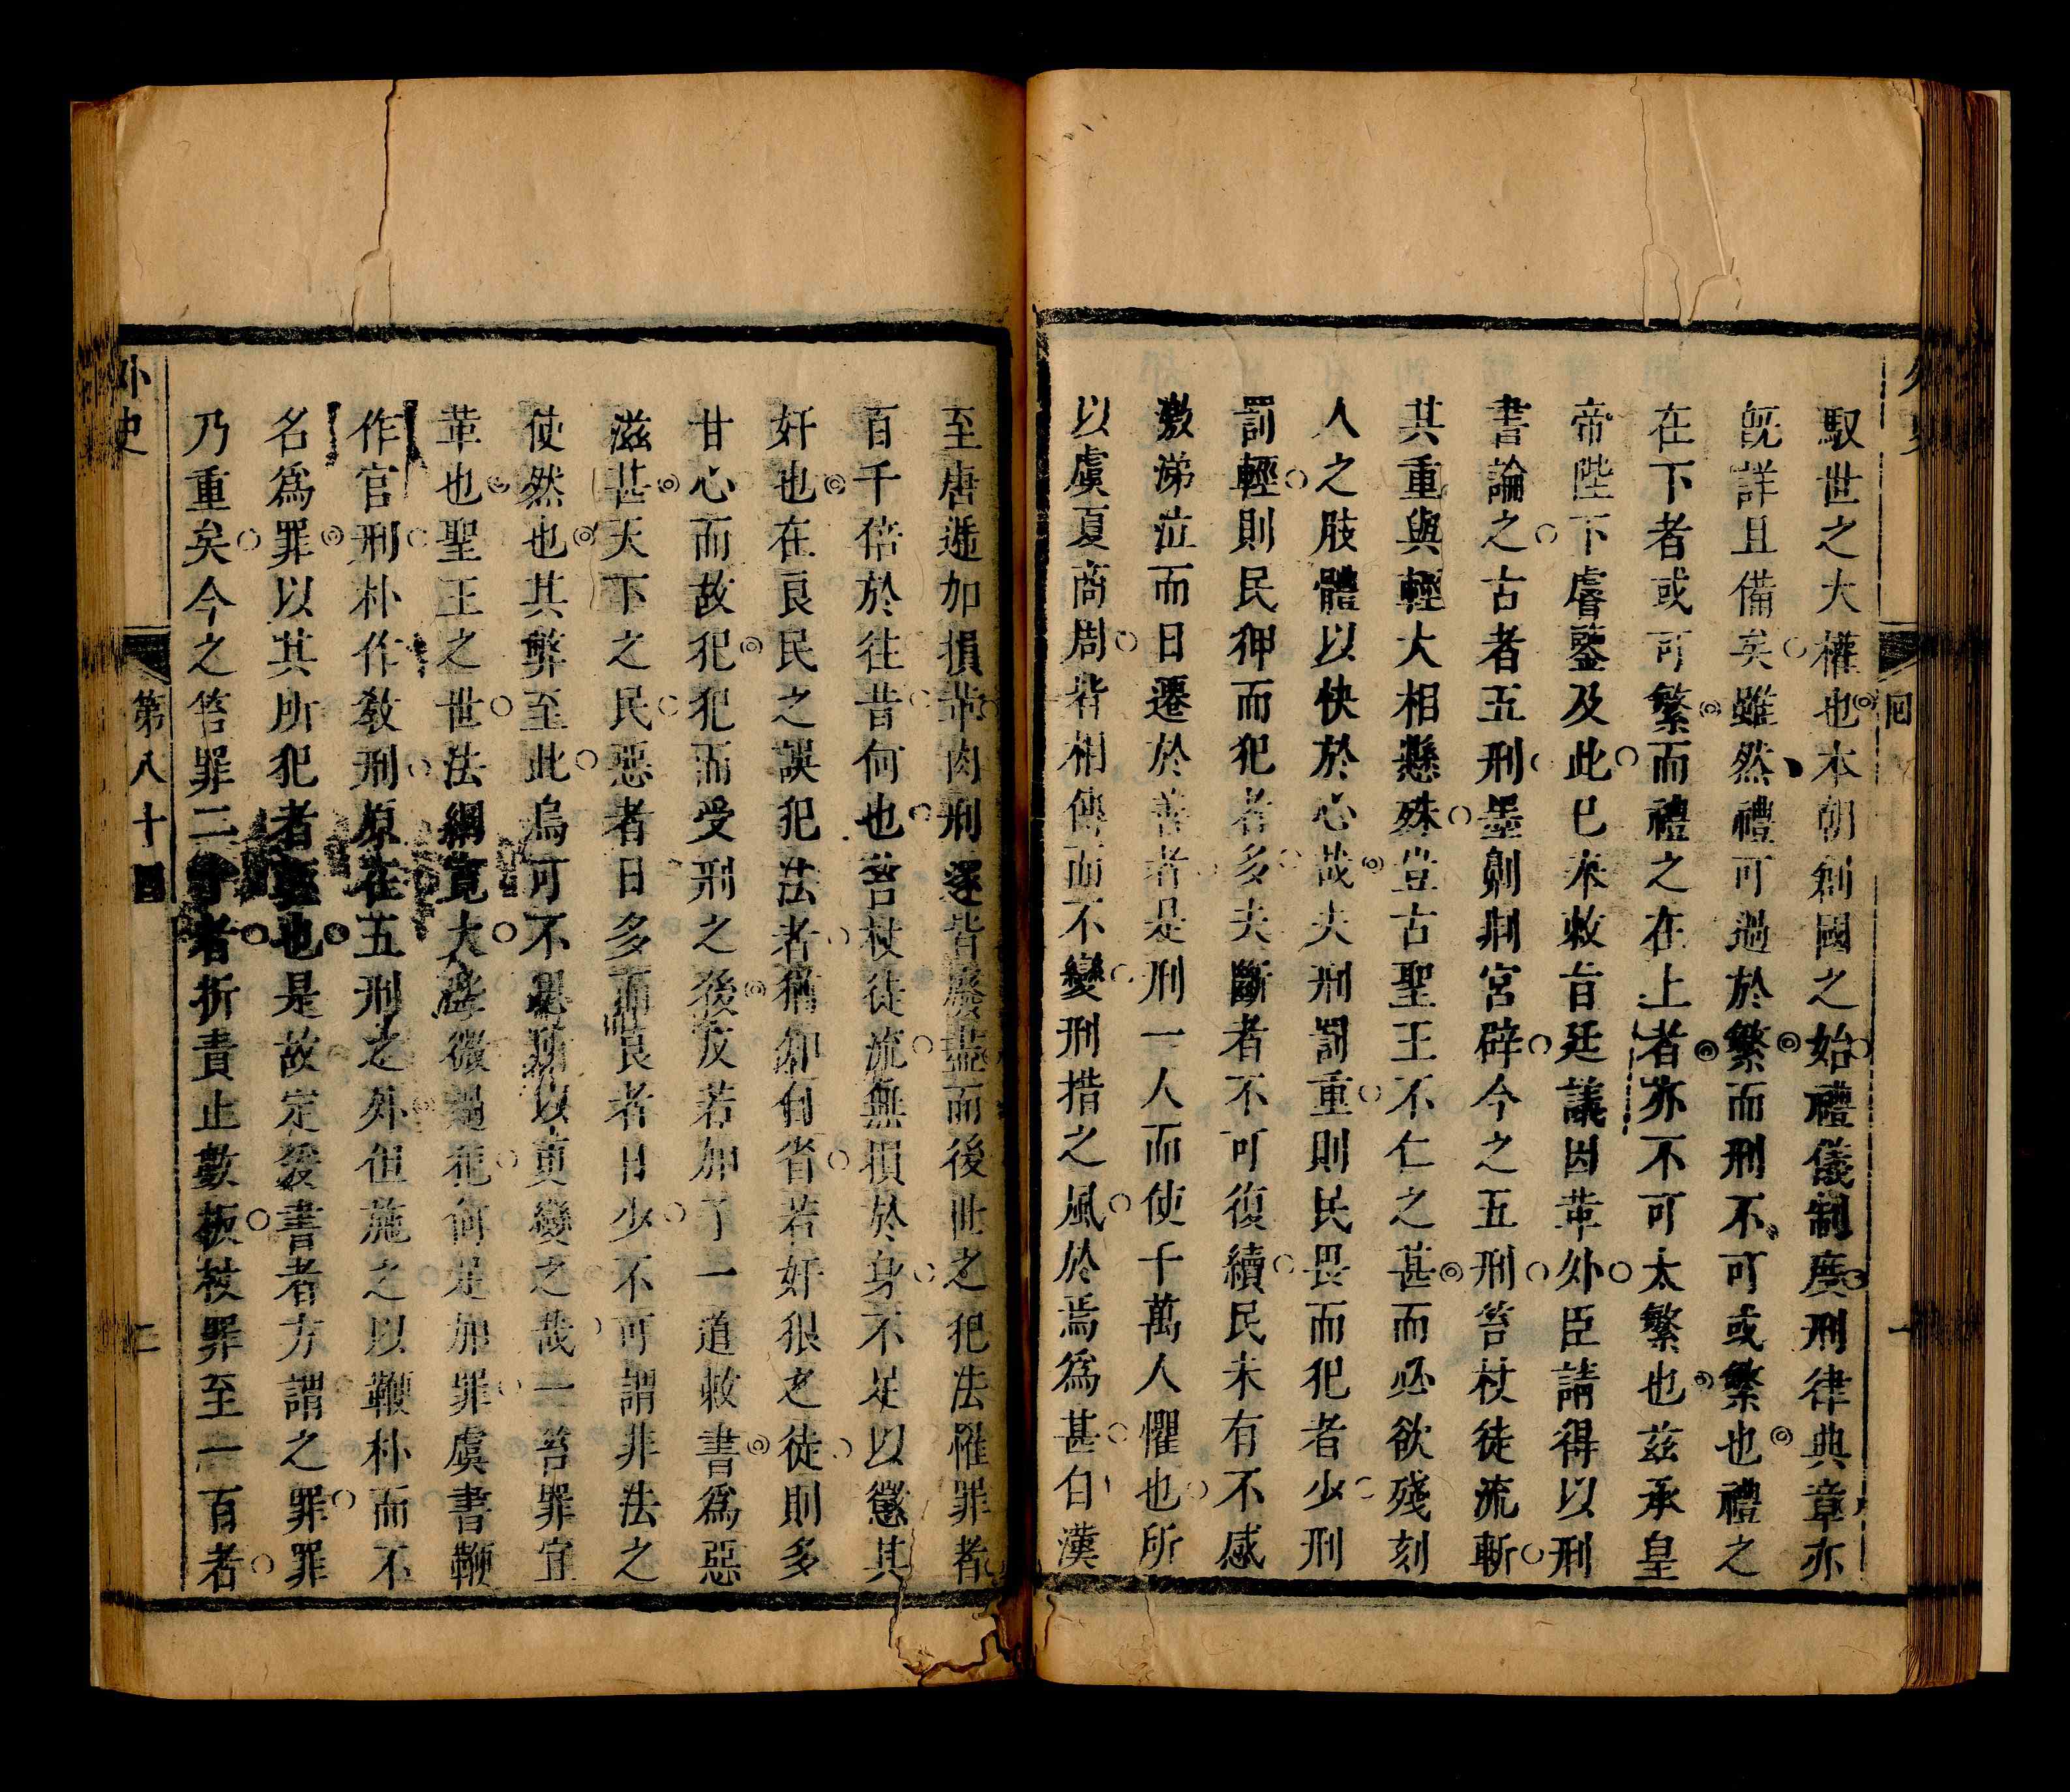 馭世之大權也本朝創國之始禮儀制度刑律典章亦
旣詳且備矣雖然禮可過於繁而刑不可或繁也禮之
在下者或可繁而禮之在上者亦不可太繁也茲承皇
帝陛下睿鑒及此已來敕旨廷議因革外臣請得以刑
書論之古者五刑墨劓剕宮辟今之五刑笞杖徒流斬
其重與輕大相懸殊豈古聖王不仁之甚而必欲殘刻
人之肢體以快於心哉夫刑罰重則民畏而犯者少刑
罰輕則民狎而犯者多夫斷者不可復續民未有不感
激涕泣而日遷於善者是刑一人而使千萬人懼也所
以虞夏商周皆相傳而不變刑措之風於焉爲甚自漢
至唐遞加損革肉刑遂皆廢盡而後世之犯法罹罪者
百千倍於往昔何也笞杖徒流無損於身不足以懲其
奸也在良民之誤犯法者猶卻自省若奸狠之徒則多
甘心而故犯犯而受刑之後反若加了一道敕書爲惡
滋甚天下之民惡者日多而良者日少不可謂非法之
使然也其弊至此烏可不思所以更變之哉一笞罪宜
革也聖王之世法網寬大些微過犯何足加罪虞書鞭
作官刑朴作敎刑原在五刑之外但施之以鞭朴而不
名爲罪以其所犯者輕也是故定爰書者方謂之罪罪
乃重矣今之笞罪二十者折責止數板杖罪至一百者
外史
第八十回
二